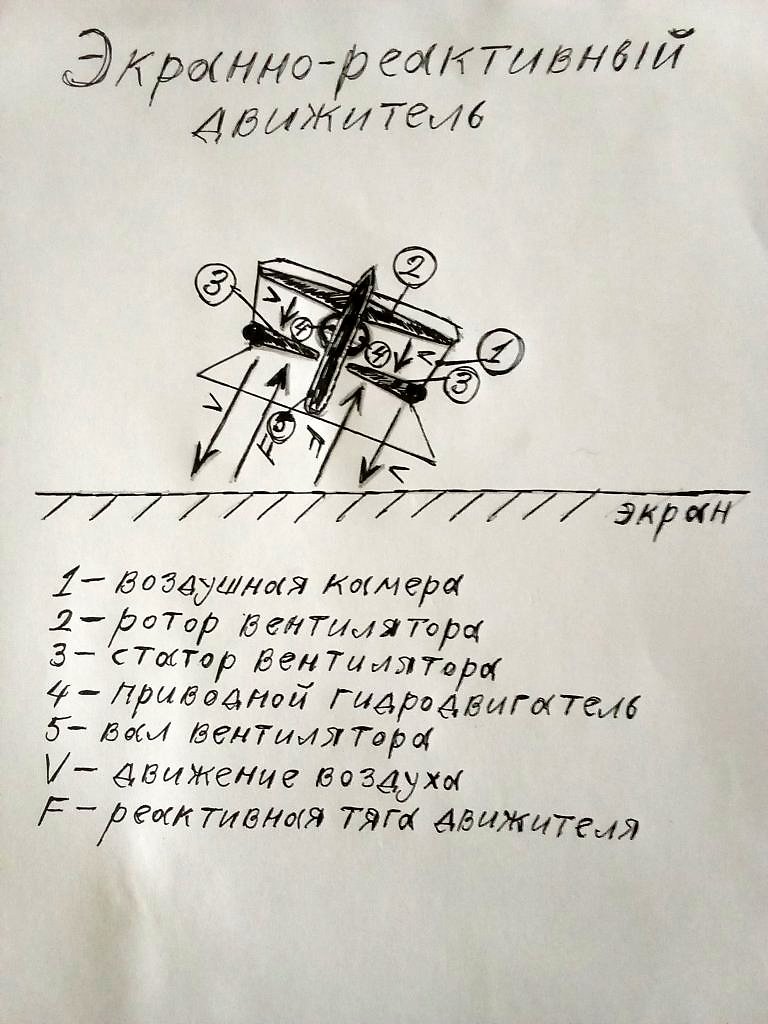 Экранно-реактивный
движитель
3
2
V
4
4
V
1
3
V
F
5
F
V
экран
1 – воздушная камера
2 – ротор вентилятора
3 – статор вентилятора
4 – приводной гидродвигатель
5 – вал вентилятора
V – движение воздуха
F – реактивная тяга движителя